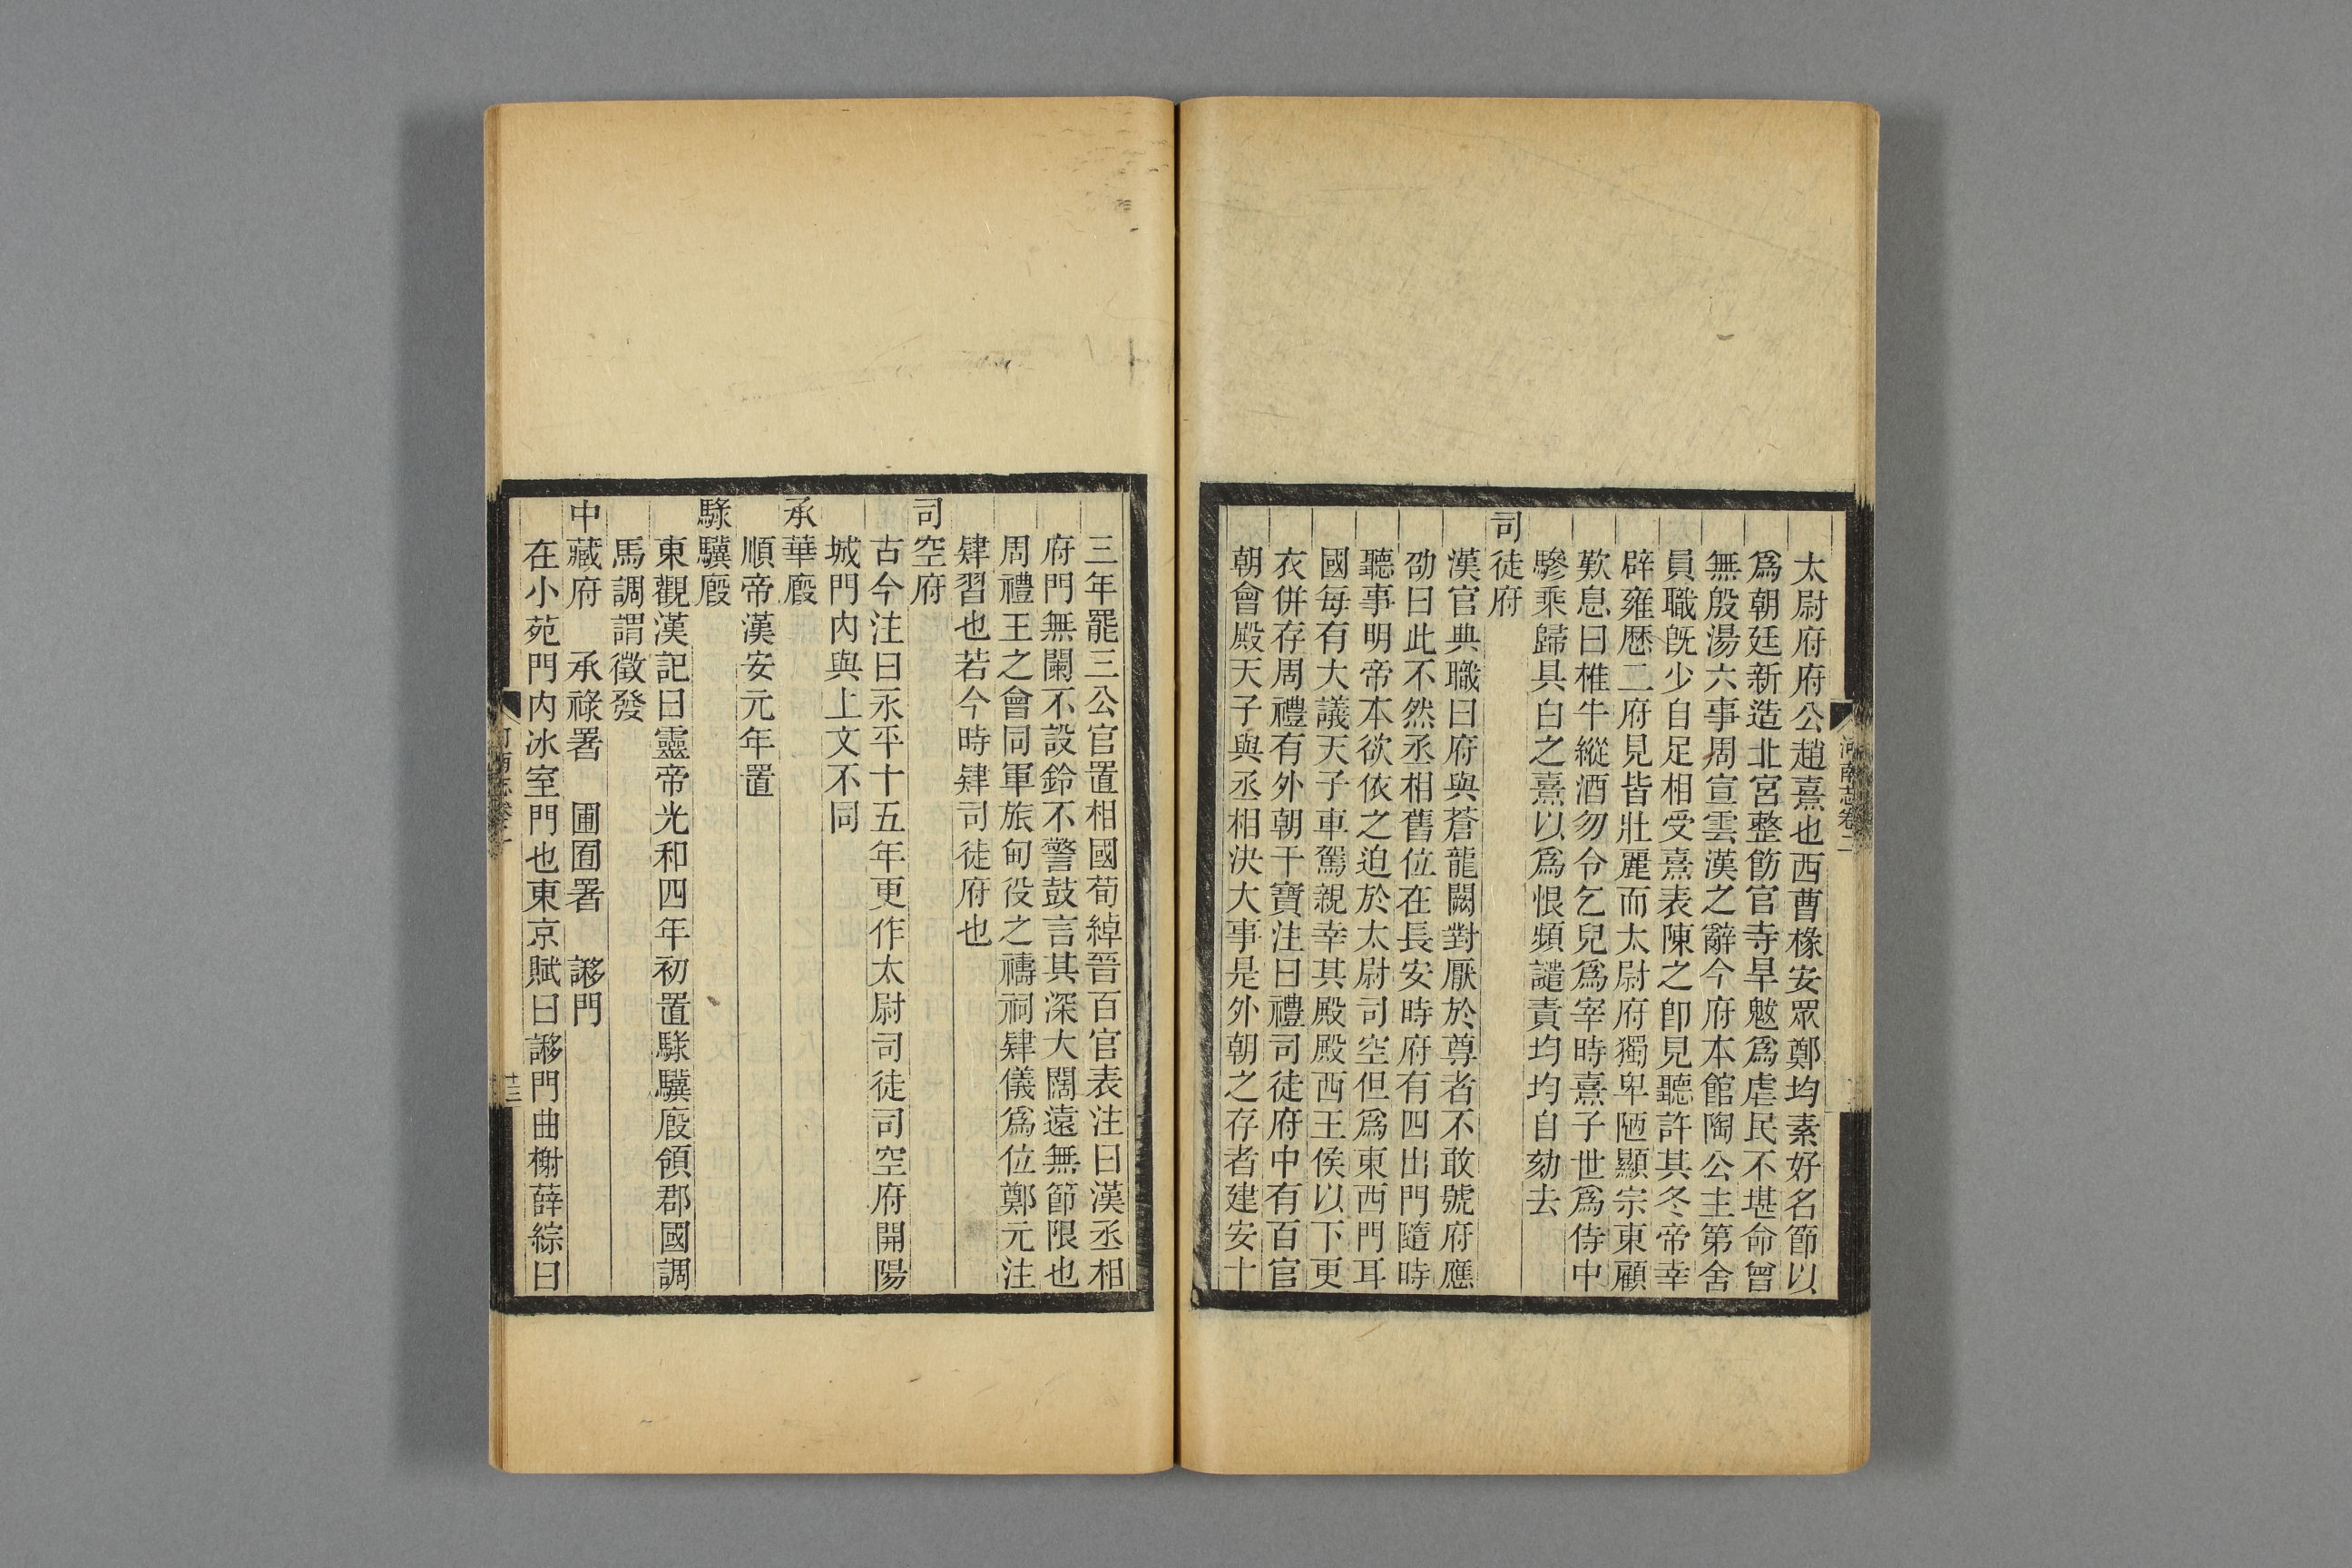 太尉府府公趙熹也西曹椽安眾鄭均素好名節以
爲朝廷新造北宮整飭官寺旱魃爲虐民不堪命曾
無殷湯六事周宣雲漢之辭今府本館陶公主第舍
員職既少自足相受熹表陳之卽見聽許其冬帝幸
辟雍歷二府見皆壯麗而太尉府獨卑陋顯宗東顧
歎息曰椎牛縱酒勿令乞兒爲宰時熹子世爲侍中
驂乘歸具白之熹以爲恨頻譴責均均自劾去
司徒府
漢官典職曰府與蒼龍闕對厭於尊者不敢號府應
劭曰此不然丞相舊位在長安時府有四出門隨時
聽事明帝本欲依之迫於太尉司空但爲東西門耳
國每有大議天子車駕親幸其殿殿西王侯以下更
衣併存周禮有外朝干寶注曰禮司徒府中有百官
朝會殿天子與丞相決大事是外朝之存者建安十
河南志卷二
三年罷三公官置相國荀綽晉百官表注曰漢丞相
府門無闌不設鈴不警鼓言其深大闊遠無節限也
周禮王之會同軍旅甸役之禱祠肄儀爲位鄭元注
肄習也若今時肄司徒府也
司空府
古今注曰永平十五年更作太尉司徒司空府開陽
城門內與上文不同
承華廄
順帝漢安元年置
騄驥廄
東觀漢記曰靈帝光和四年初置騄驥廄領郡國調
馬調謂徵發
中藏府　承祿署　圃囿署　謻門
在小苑門內冰室門也東京賦曰謻門曲榭薛綜曰
十三